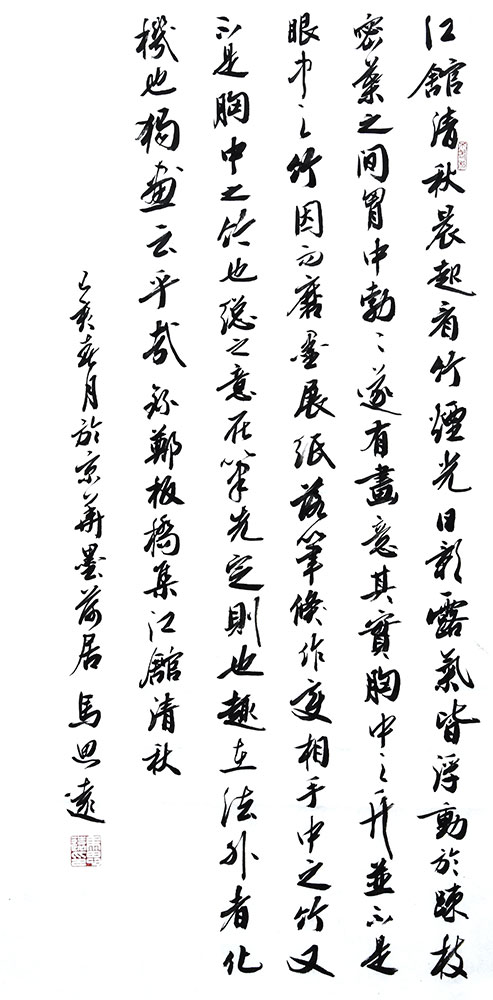 江館清秋晨起看竹煙光日影露氣皆浮動於疎枝
密葉之間胃中勃〻遂有畫意其實胸中之竹並不是
眼中之竹因而磨墨展紙落筆倏作变相手中之竹又
不是胸中之竹也總之意在筆先定則也趣在法外者化
機也獨畫云乎哉 錄鄭板橋集江館清秋
己亥春月於京華墨荷居 馬思遠